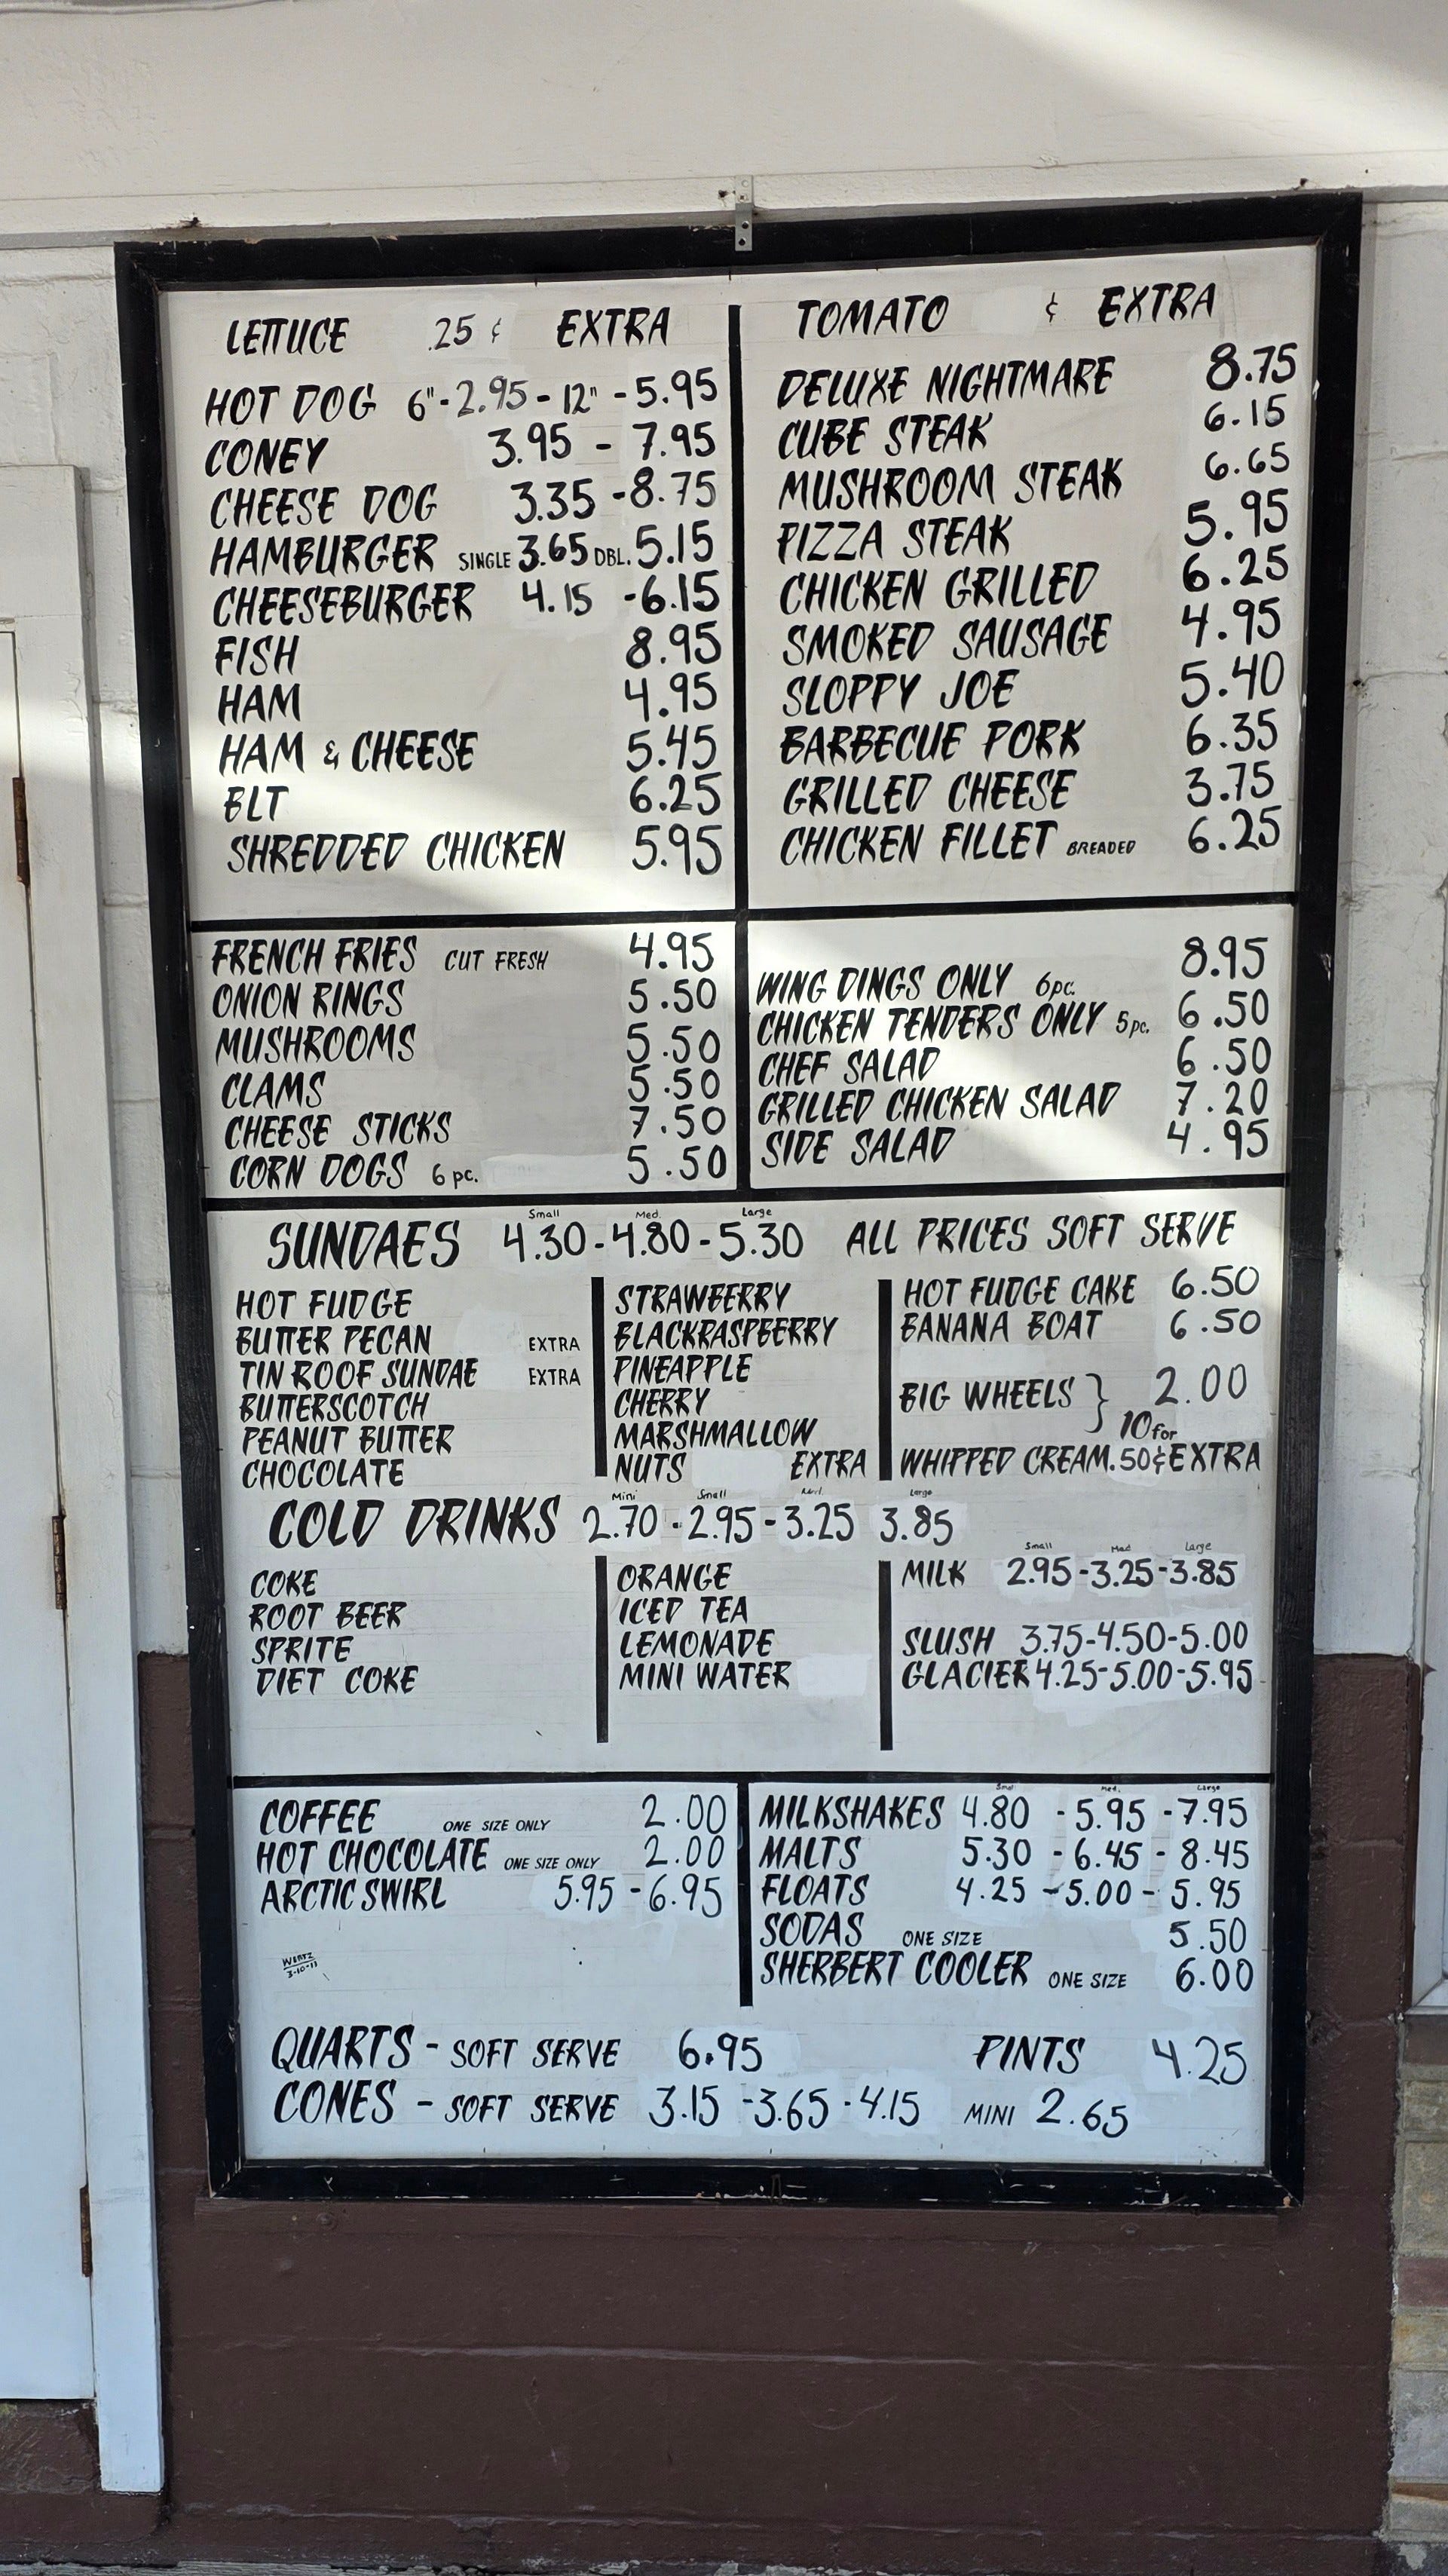 LETTUCE .25 ¢ EXTRA
HOT DOG 6"-2.95 - 12" -5.95
CONEY 3.95 - 7.95
CHEESE DOG 3.35 -8.75
HAMBURGER SINGLE 3.65 DBL. 5.15
CHEESEBURGER 4.15 -6.15
FISH 8.95
HAM 4.95
HAM & CHEESE 5.45
BLT 6.25
SHREDDED CHICKEN 5.95
TOMATO ¢ EXTRA
DELUXE NIGHTMARE 8.75
CUBE STEAK 6.15
MUSHROOM STEAK 6.65
PIZZA STEAK 5.95
CHICKEN GRILLED 6.25
SMOKED SAUSAGE 4.95
SLOPPY JOE 5.40
BARBECUE PORK 6.35
GRILLED CHEESE 3.75
CHICKEN FILLET BREADED 6.25
FRENCH FRIES CUT FRESH 4.95
ONION RINGS 5.50
MUSHROOMS 5.50
CLAMS 5.50
CHEESE STICKS 7.50
CORN DOGS 6 pc. 5.50
WING DINGS ONLY 6pc. 8.95
CHICKEN TENDERS ONLY 5pc. 6.50
CHEF SALAD 6.50
GRILLED CHICKEN SALAD 7.20
SIDE SALAD 4.95
Small Med. Large
SUNDAES 4.30-4.80-5.30 ALL PRICES SOFT SERVE
HOT FUDGE
BUTTER PECAN EXTRA
TIN ROOF SUNDAE EXTRA
BUTTERSCOTCH
PEANUT BUTTER
CHOCOLATE
STRAWBERRY
BLACKRASPBERRY
PINEAPPLE
CHERRY
MARSHMALLOW
NUTS EXTRA
HOT FUDGE CAKE 6.50
BANANA BOAT 6.50
BIG WHEELS } 2.00
10 for
WHIPPED CREAM .50¢ EXTRA
Mini Small Med. Large
COLD DRINKS 2.70 - 2.95 - 3.25 3.85
COKE
ROOT BEER
SPRITE
DIET COKE
ORANGE
ICED TEA
LEMONADE
MINI WATER
Small Med Large
MILK 2.95-3.25-3.85
SLUSH 3.75-4.50-5.00
GLACIER 4.25-5.00-5.95
COFFEE ONE SIZE ONLY 2.00
HOT CHOCOLATE ONE SIZE ONLY 2.00
ARCTIC SWIRL 5.95 -6.95
WERTZ
3-10-11
Small Med. Large
MILKSHAKES 4.80 - 5.95 - 7.95
MALTS 5.30 - 6.45 - 8.45
FLOATS 4.25 - 5.00 - 5.95
SODAS ONE SIZE 5.50
SHERBERT COOLER ONE SIZE 6.00
QUARTS - SOFT SERVE 6.95 PINTS 4.25
CONES - SOFT SERVE 3.15 -3.65 - 4.15 MINI 2.65